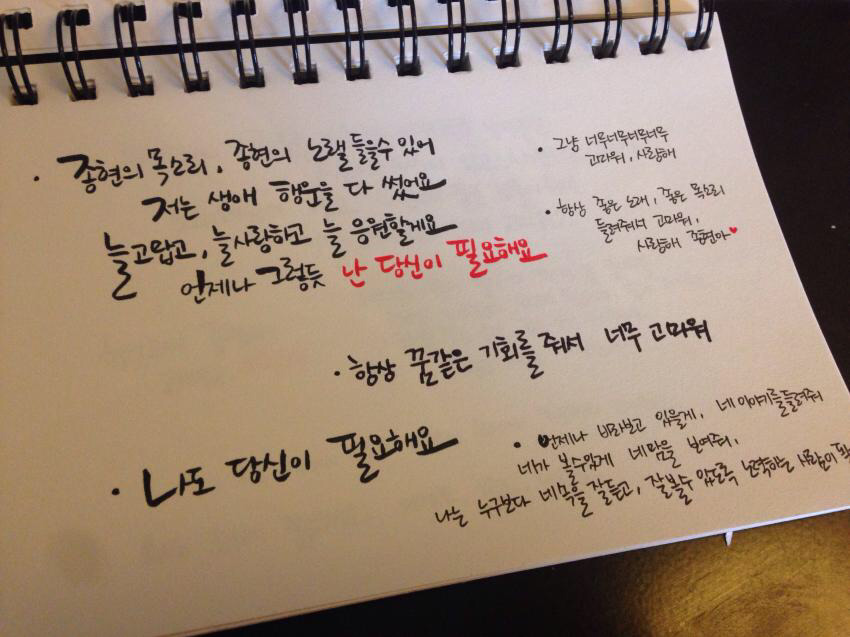 · 종현의 목소리, 종현의 노래를 들을수 있어
저는 생애 행운을 다 썼어요
늘 고맙고, 늘 사랑하고 늘 응원할게요
언제나 그렇듯 난 당신이 필요해요
· 그냥 너무너무너무너무
고마워, 사랑해
· 항상 좋은 노래, 좋은 목소리
들려줘서 고마워,
사랑해 종현아♥
· 항상 꿈같은 기회를 줘서 너무 고마워
· 나도 당신이 필요해요
· 언제나 바라보고 있을게, 네 이야기를 들려줘
네가 볼수있게 네 맘을 보여줘,
나는 누구보다 네 목을 잘듣고, 잘볼수 있도록 노력하는 사람이